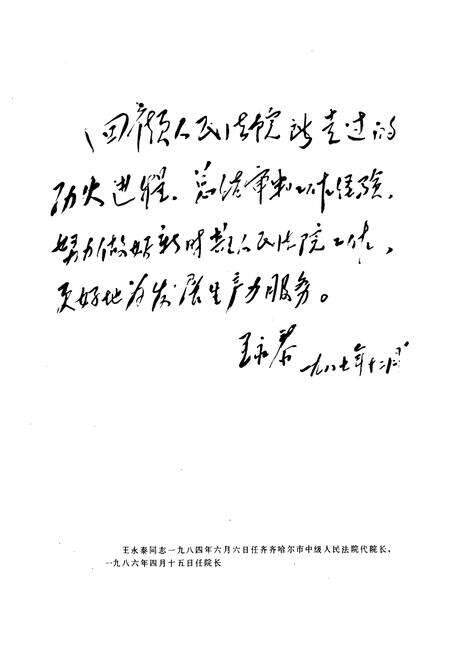 回顾人民法院所走过的
历史进程，总结审判工作经验，
努力做好新时期人民法院工作，
更好地为发展生产力服务。
王永泰 一九八七年十二月
王永泰同志一九八四年六月六日任齐齐哈尔市中级人民法院代院长，
一九八六年四月十五日任院长